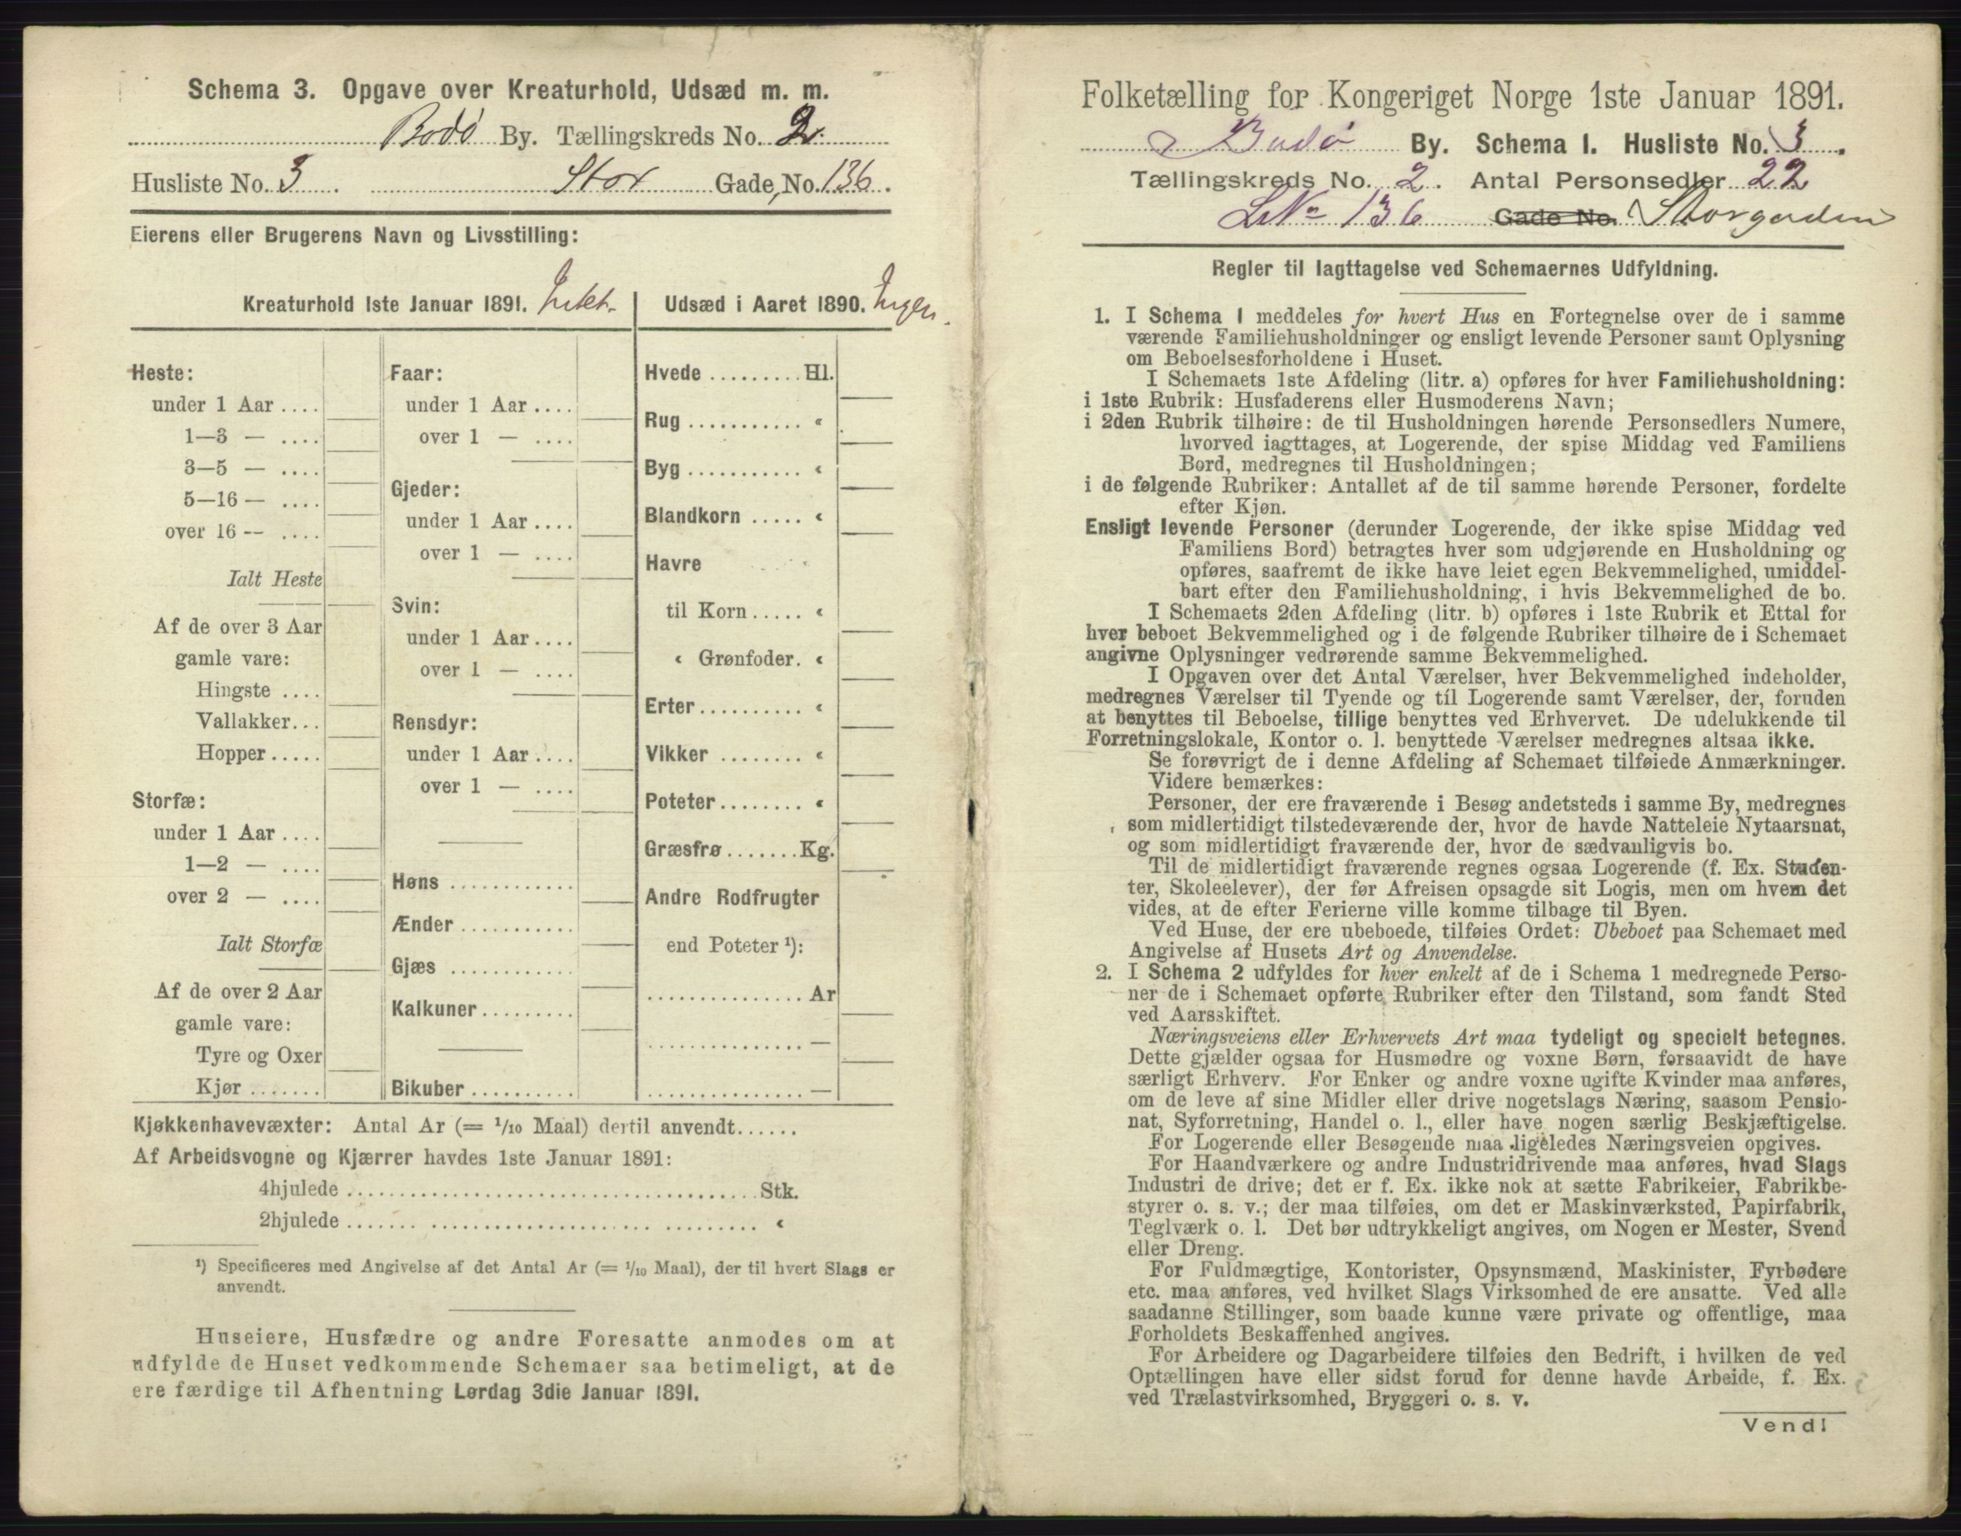 Schema 3. Opgave over Kreaturhold, Udsæd m. m.
Bodø By. Tællingskreds No. 2.
Husliste No. 3. Stor Gade, No. 136.
Eierens eller Brugerens Navn og Livsstilling:
Kreaturhold 1ste Januar 1891. Intet.
Heste:
under 1 Aar ....
1—3 — ....
3—5 — ....
5—16 — ....
over 16 -- ....
Ialt Heste
Af de over 3 Aar
gamle vare:
Hingste ....
Vallakker...
Hopper.....
Storfæ:
under 1 Aar ....
1—2 — ....
over 2 — ....
Ialt Storfæ
Af de over 2 Aar
gamle vare:
Tyre og Oxer
Kjør .......
Faar:
under 1 Aar ....
over 1 — ....
Gjeder:
under 1 Aar ....
over 1 — ....
Svin:
under 1 Aar ....
over 1 — ....
Rensdyr:
under 1 Aar ....
over 1 — ....
Høns ............
Ænder ...........
Gjæs ............
Kalkuner.........
Bikuber..........
Udsæd i Aaret 1890. Ingen.
Hvede ......... Hl.
Rug ........... «
Byg ........... «
Blandkorn ..... «
Havre
til Korn ..... «
« Grønfoder. «
Erter.......... «
Vikker ........ «
Poteter........ «
Græsfrø....... Kg.
Andre Rodfrugter
end Poteter ¹):
............... Ar
............... —
............... —
Kjøkkenhavevæxter: Antal Ar (= 1/10 Maal) dertil anvendt......
Af Arbeidsvogne og Kjærrer havdes 1ste Januar 1891:
4hjulede ........................................ Stk.
2hjulede ....... ..................... ......... «
¹) Specificeres med Angivelse af det Antal Ar (= 1/10 Maal), der til hvert Slags er
anvendt.
Huseiere, Husfædre og andre Foresatte anmodes om at
udfylde de Huset vedkommende Schemaer saa betimeligt, at de
ere færdige til Afhentning Lørdag 3die Januar 1891.
Folketælling for Kongeriget Norge 1ste Januar 1891.
Bodø By. Schema I. Husliste No. 3.
Tællingskreds No. 2. Antal Personsedler 22
LNo 136 Gade No. Storgaden
Regler til Iagttagelse ved Schemaernes Udfyldning.
1. I Schema I meddeles for hvert Hus en Fortegnelse over de i samme
værende Familiehusholdninger og ensligt levende Personer samt Oplysning
om Beboelsesforholdene i Huset.
I Schemaets 1ste Afdeling (litr. a) opføres for hver Familiehusholdning:
i 1ste Rubrik: Husfaderens eller Husmoderens Navn;
i 2den Rubrik tilhøire: de til Husholdningen hørende Personsedlers Numere,
hvorved iagttages, at Logerende, der spise Middag ved Familiens
Bord, medregnes til Husholdningen;
i de følgende Rubriker: Antallet af de til samme hørende Personer, fordelte
efter Kjøn.
Ensligt levende Personer (derunder Logerende, der ikke spise Middag ved
Familiens Bord) betragtes hver som udgjørende en Husholdning og
opføres, saafremt de ikke have leiet egen Bekvemmelighed, umiddel-
bart efter den Familiehusholdning, i hvis Bekvemmelighed de bo.
I Schemaets 2den Afdeling (litr. b) opføres i 1ste Rubrik et Ettal for
hver beboet Bekvemmelighed og i de følgende Rubriker tilhøire de i Schemaet
angivne Oplysninger vedrørende samme Bekvemmelighed.
I Opgaven over det Antal Værelser, hver Bekvemmelighed indeholder,
medregnes Værelser til Tyende og til Logerende samt Værelser, der, foruden
at benyttes til Beboelse, tillige benyttes ved Erhvervet. De udelukkende til
Forretningslokale, Kontor o. l. benyttede Værelser medregnes altsaa ikke.
Se forøvrigt de i denne Afdeling af Schemaet tilføiede Anmærkninger.
Videre bemærkes:
Personer, der ere fraværende i Besøg andetsteds i samme By, medregnes
som midlertidigt tilstedeværende der, hvor de havde Natteleie Nytaarsnat,
og som midlertidigt fraværende der, hvor de sædvanligvis bo.
Til de midlertidigt fraværende regnes ogsaa Logerende (f. Ex. Studen-
ter, Skoleelever), der før Afreisen opsagde sit Logis, men om hvem det
vides, at de efter Ferierne ville komme tilbage til Byen.
Ved Huse, der ere ubeboede, tilføies Ordet: Ubeboet paa Schemaet med
Angivelse af Husets Art og Anvendelse.
2. I Schema 2 udfyldes for hver enkelt af de i Schema 1 medregnede Perso-
ner de i Schemaet opførte Rubriker efter den Tilstand, som fandt Sted
ved Aarsskiftet.
Næringsveiens eller Erhvervets Art maa tydeligt og specielt betegnes.
Dette gjælder ogsaa for Husmødre og voxne Børn, forsaavidt de have
særligt Erhverv. For Enker og andre voxne ugifte Kvinder maa anføres,
om de leve af sine Midler eller drive nogetslags Næring, saasom Pensio-
nat, Syforretning, Handel o. l., eller have nogen særlig Beskjæftigelse.
For Logerende eller Besøgende maa ligeledes Næringsveien opgives.
For Haandværkere og andre Industridrivende maa anføres, hvad Slags
Industri de drive; det er f. Ex. ikke nok at sætte Fabrikeier, Fabrikbe-
styrer o. s. v.; der maa tilføies, om det er Maskinværksted, Papirfabrik,
Teglværk o. l. Det bør udtrykkeligt angives, om Nogen er Mester, Svend
eller Dreng.
For Fuldmægtige, Kontorister, Opsynsmænd, Maskinister, Fyrbødere
etc. maa anføres, ved hvilket Slags Virksomhed de ere ansatte. Ved alle
saadanne Stillinger, som baade kunne være private og offentlige, maa
Forholdets Beskaffenhed angives.
For Arbeidere og Dagarbeidere tilføies den Bedrift, i hvilken de ved
Optællingen have eller sidst forud for denne havde Arbeide, f. Ex.
ved Trælastvirksomhed, Bryggeri o. s. v.
Vend!